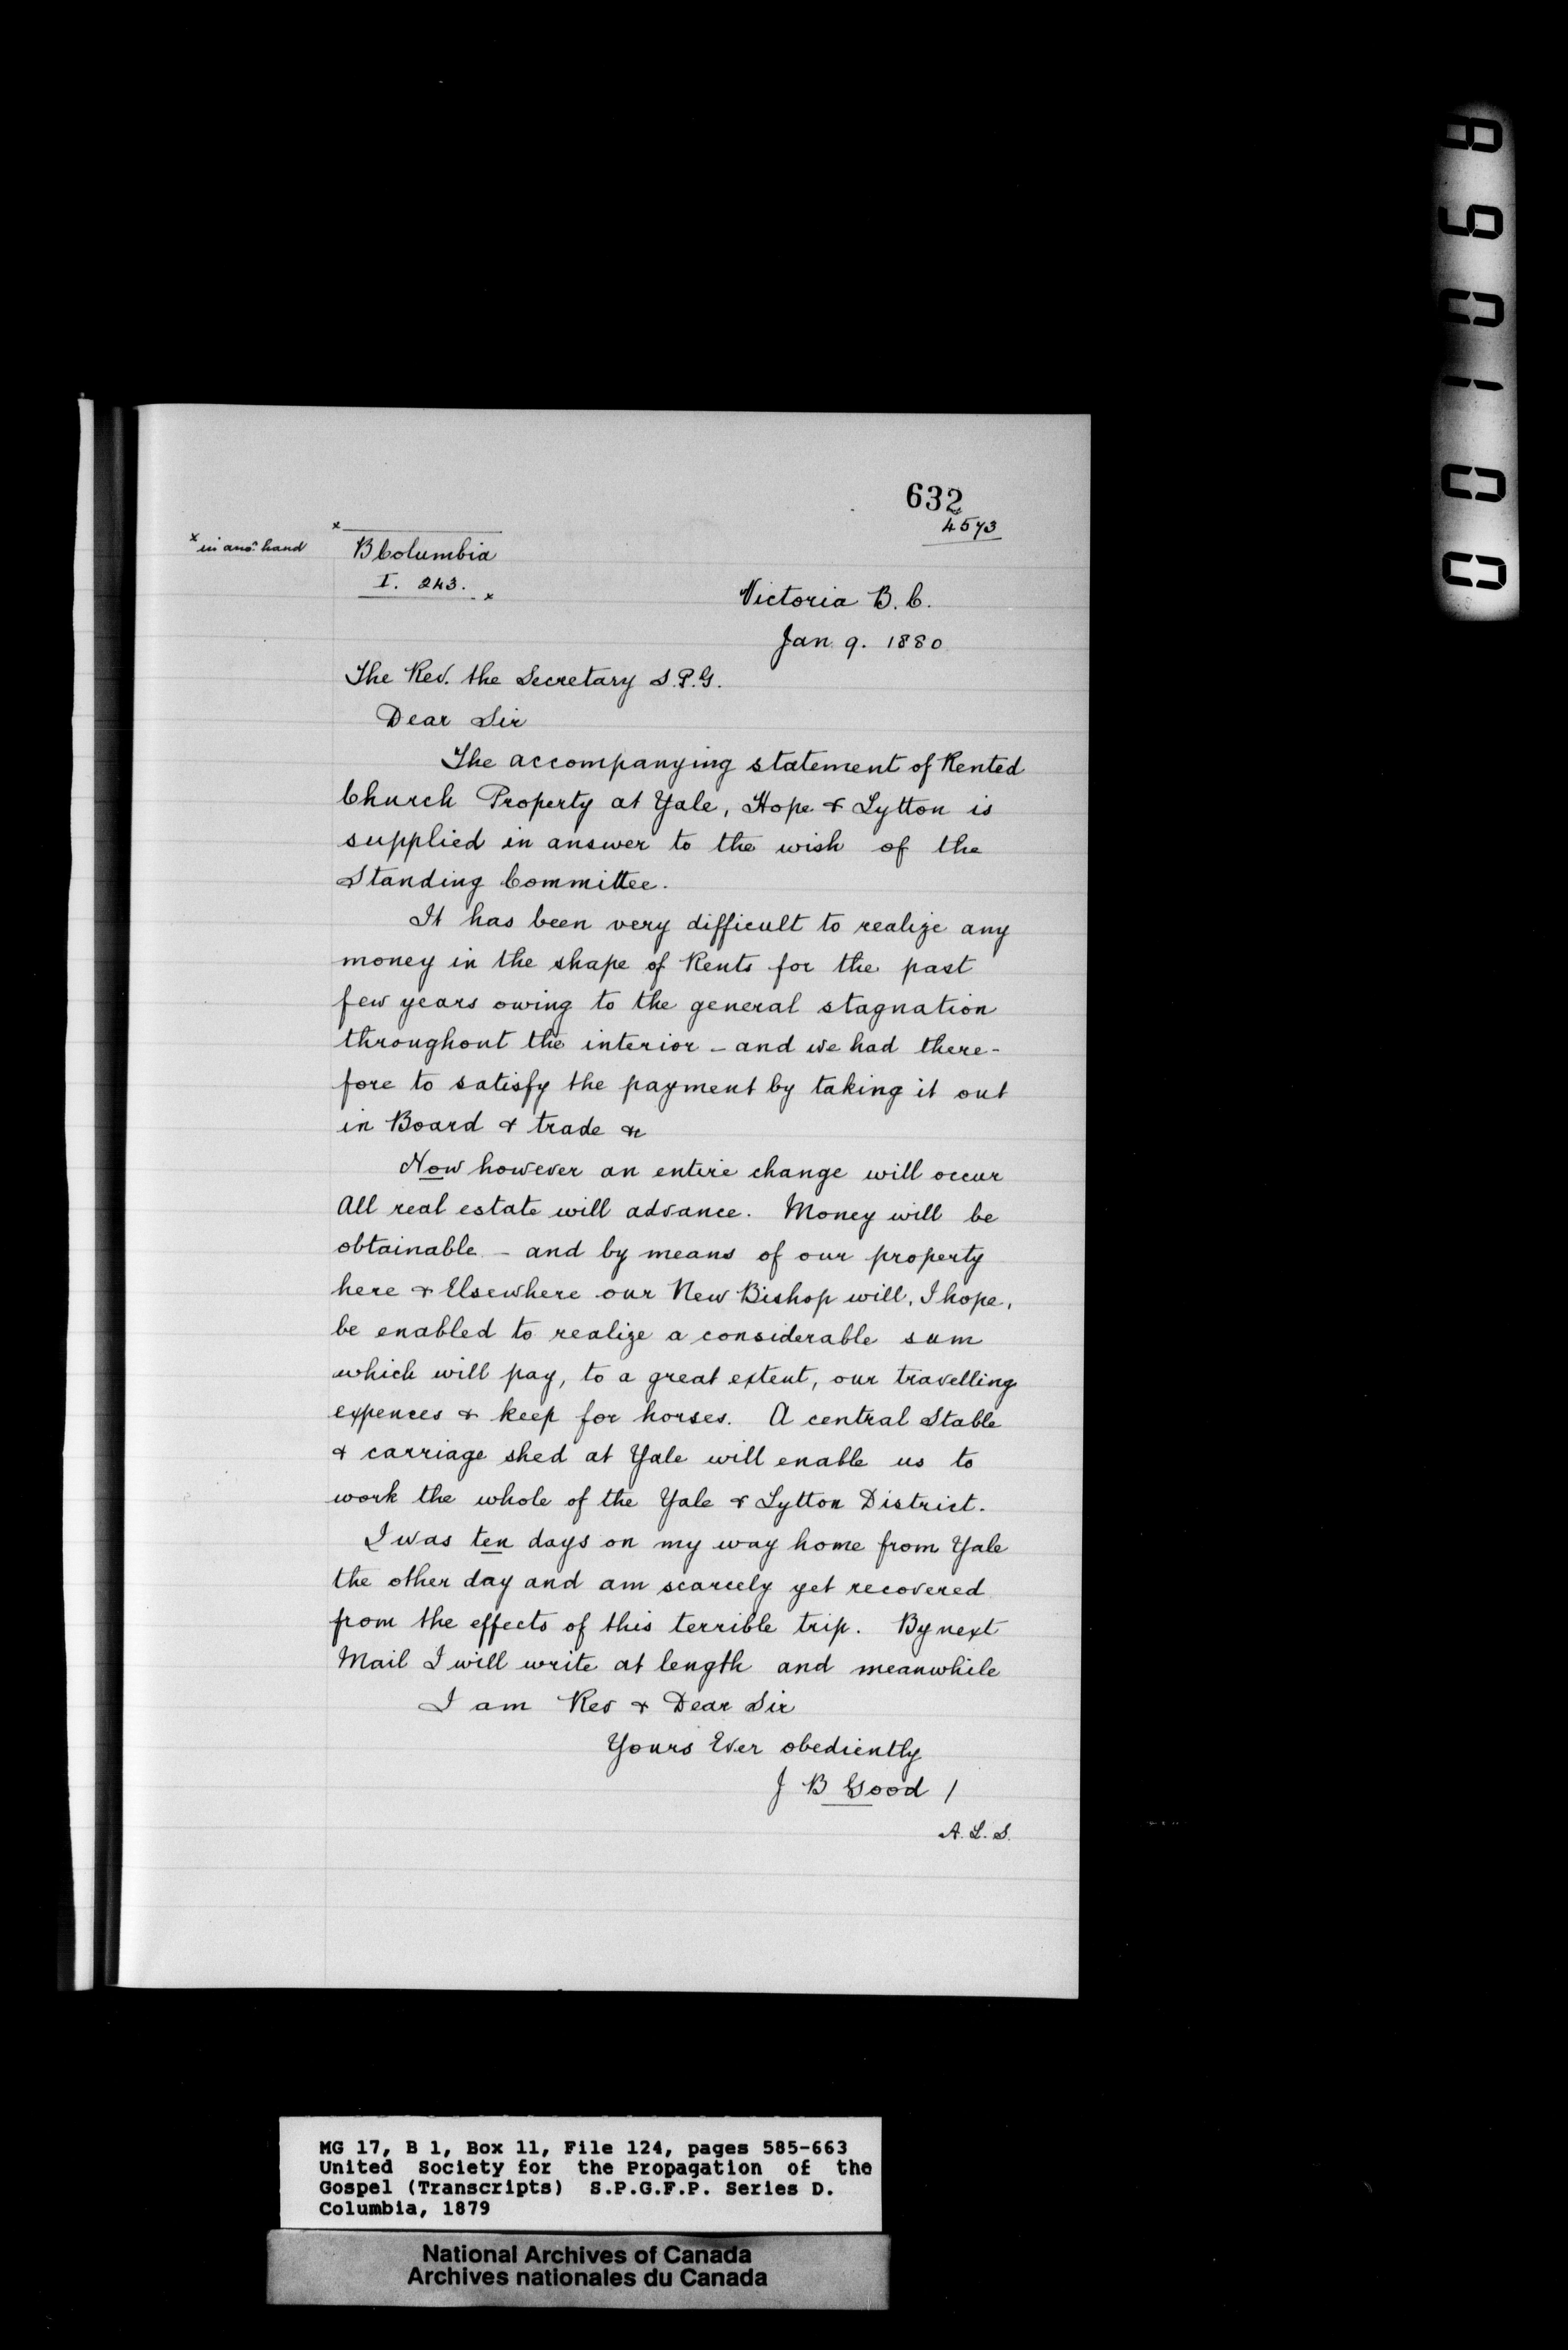 632
4573
x in anor hand
x
B Columbia
I. 243.
x
Victoria B.C.
Jan 9. 1880
The Rev. the Secretary S.P.G.
Dear Sir
The accompanying statement of Rented
Church Property at Yale, Hope & Lytton is
supplied in answer to the wish of the
Standing Committee.
It has been very difficult to realize any
money in the shape of Rents for the past
few years owing to the general stagnation
throughout the interior - and we had there-
fore to satisfy the payment by taking it out
in Board & trade &c
Now however an entire change will occur
All real estate will advance. Money will be
obtainable - and by means of our property
here & Elsewhere our New Bishop will, I hope,
be enabled to realize a considerable sum
which will pay, to a great extent, our travelling
expences & keep for horses. A central Stable
& carriage shed at Yale will enable us to
work the whole of the Yale & Lytton District.
I was ten days on my way home from Yale
the other day and am scarcely yet recovered
from the effects of this terrible trip. By next
Mail I will write at length and meanwhile
I am Rev & Dear Sir
Yours Ever obediently
J B Good /
A.L.S.
MG 17, B 1, Box 11, File 124, pages 585-663
United Society for the Propagation of the
Gospel (Transcripts) S.P.G.F.P. Series D.
Columbia, 1879
National Archives of Canada
Archives nationales du Canada